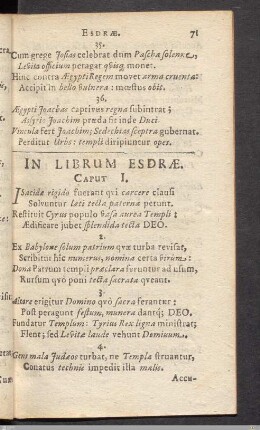 ESDRÆ. 71
35.
Cum grege Josias celebrat dum Pascha solenne,
Levita officium peragat quisq; monet.
Hinc contra Ægypti Regem movet arma cruenta:
Accipit in bello vulnera: mœstus obit.
36.
Ægypti Joachas captivus regna subintrat;
Assyrio Joachim præda fit inde Duci.
Vincula fert Joachim; Sedechias sceptra gubernat.
Perditur Urbs: templi diripiuntur opes.
IN LIBRUM ESDRÆ.
CAPUT I.
ISacidæ rigido fuerant qui carcere clausi
Solvuntur læti tecta paterna petunt.
Restituit Cyrus populo vasa aurea Templi;
Ædificare jubet splendida tecta DEO.
2.
Ex Babylone solum patrium quæ turba revisat,
Scribitur hîc numerus, nomina certa virûm:
Dona Patrum templi præclara feruntur ad usum,
Rursum quò poni tecta sacrata queant.
3.
Altare erigitur Domino quò sacra ferantur:
Post peragunt festum, munera dantq; DEO.
Fundatur Templum: Tyrius Rex ligna ministrat;
Flent; sed Levitæ laude vehunt Dominum.
4.
Gens mala Judæos turbat, ne Templa struantur,
Conatus technis impedit illa malis.
Accu-